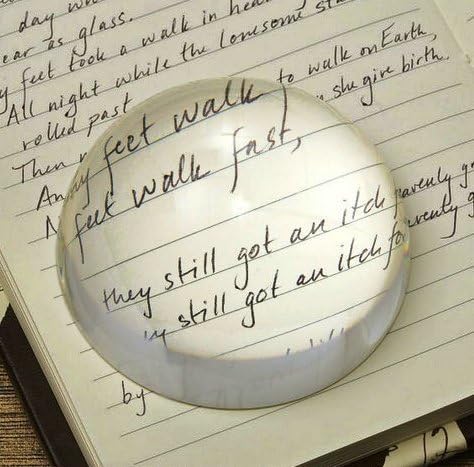 day
ear as glass.
feet took a walk in hea
All night while the lonesome sta
rolled past
Then to walk on Earth,
An my feet walk she give birth.
feet walk fast,
they still got an itch heavenly
still got an itch for heavenly g
by
12